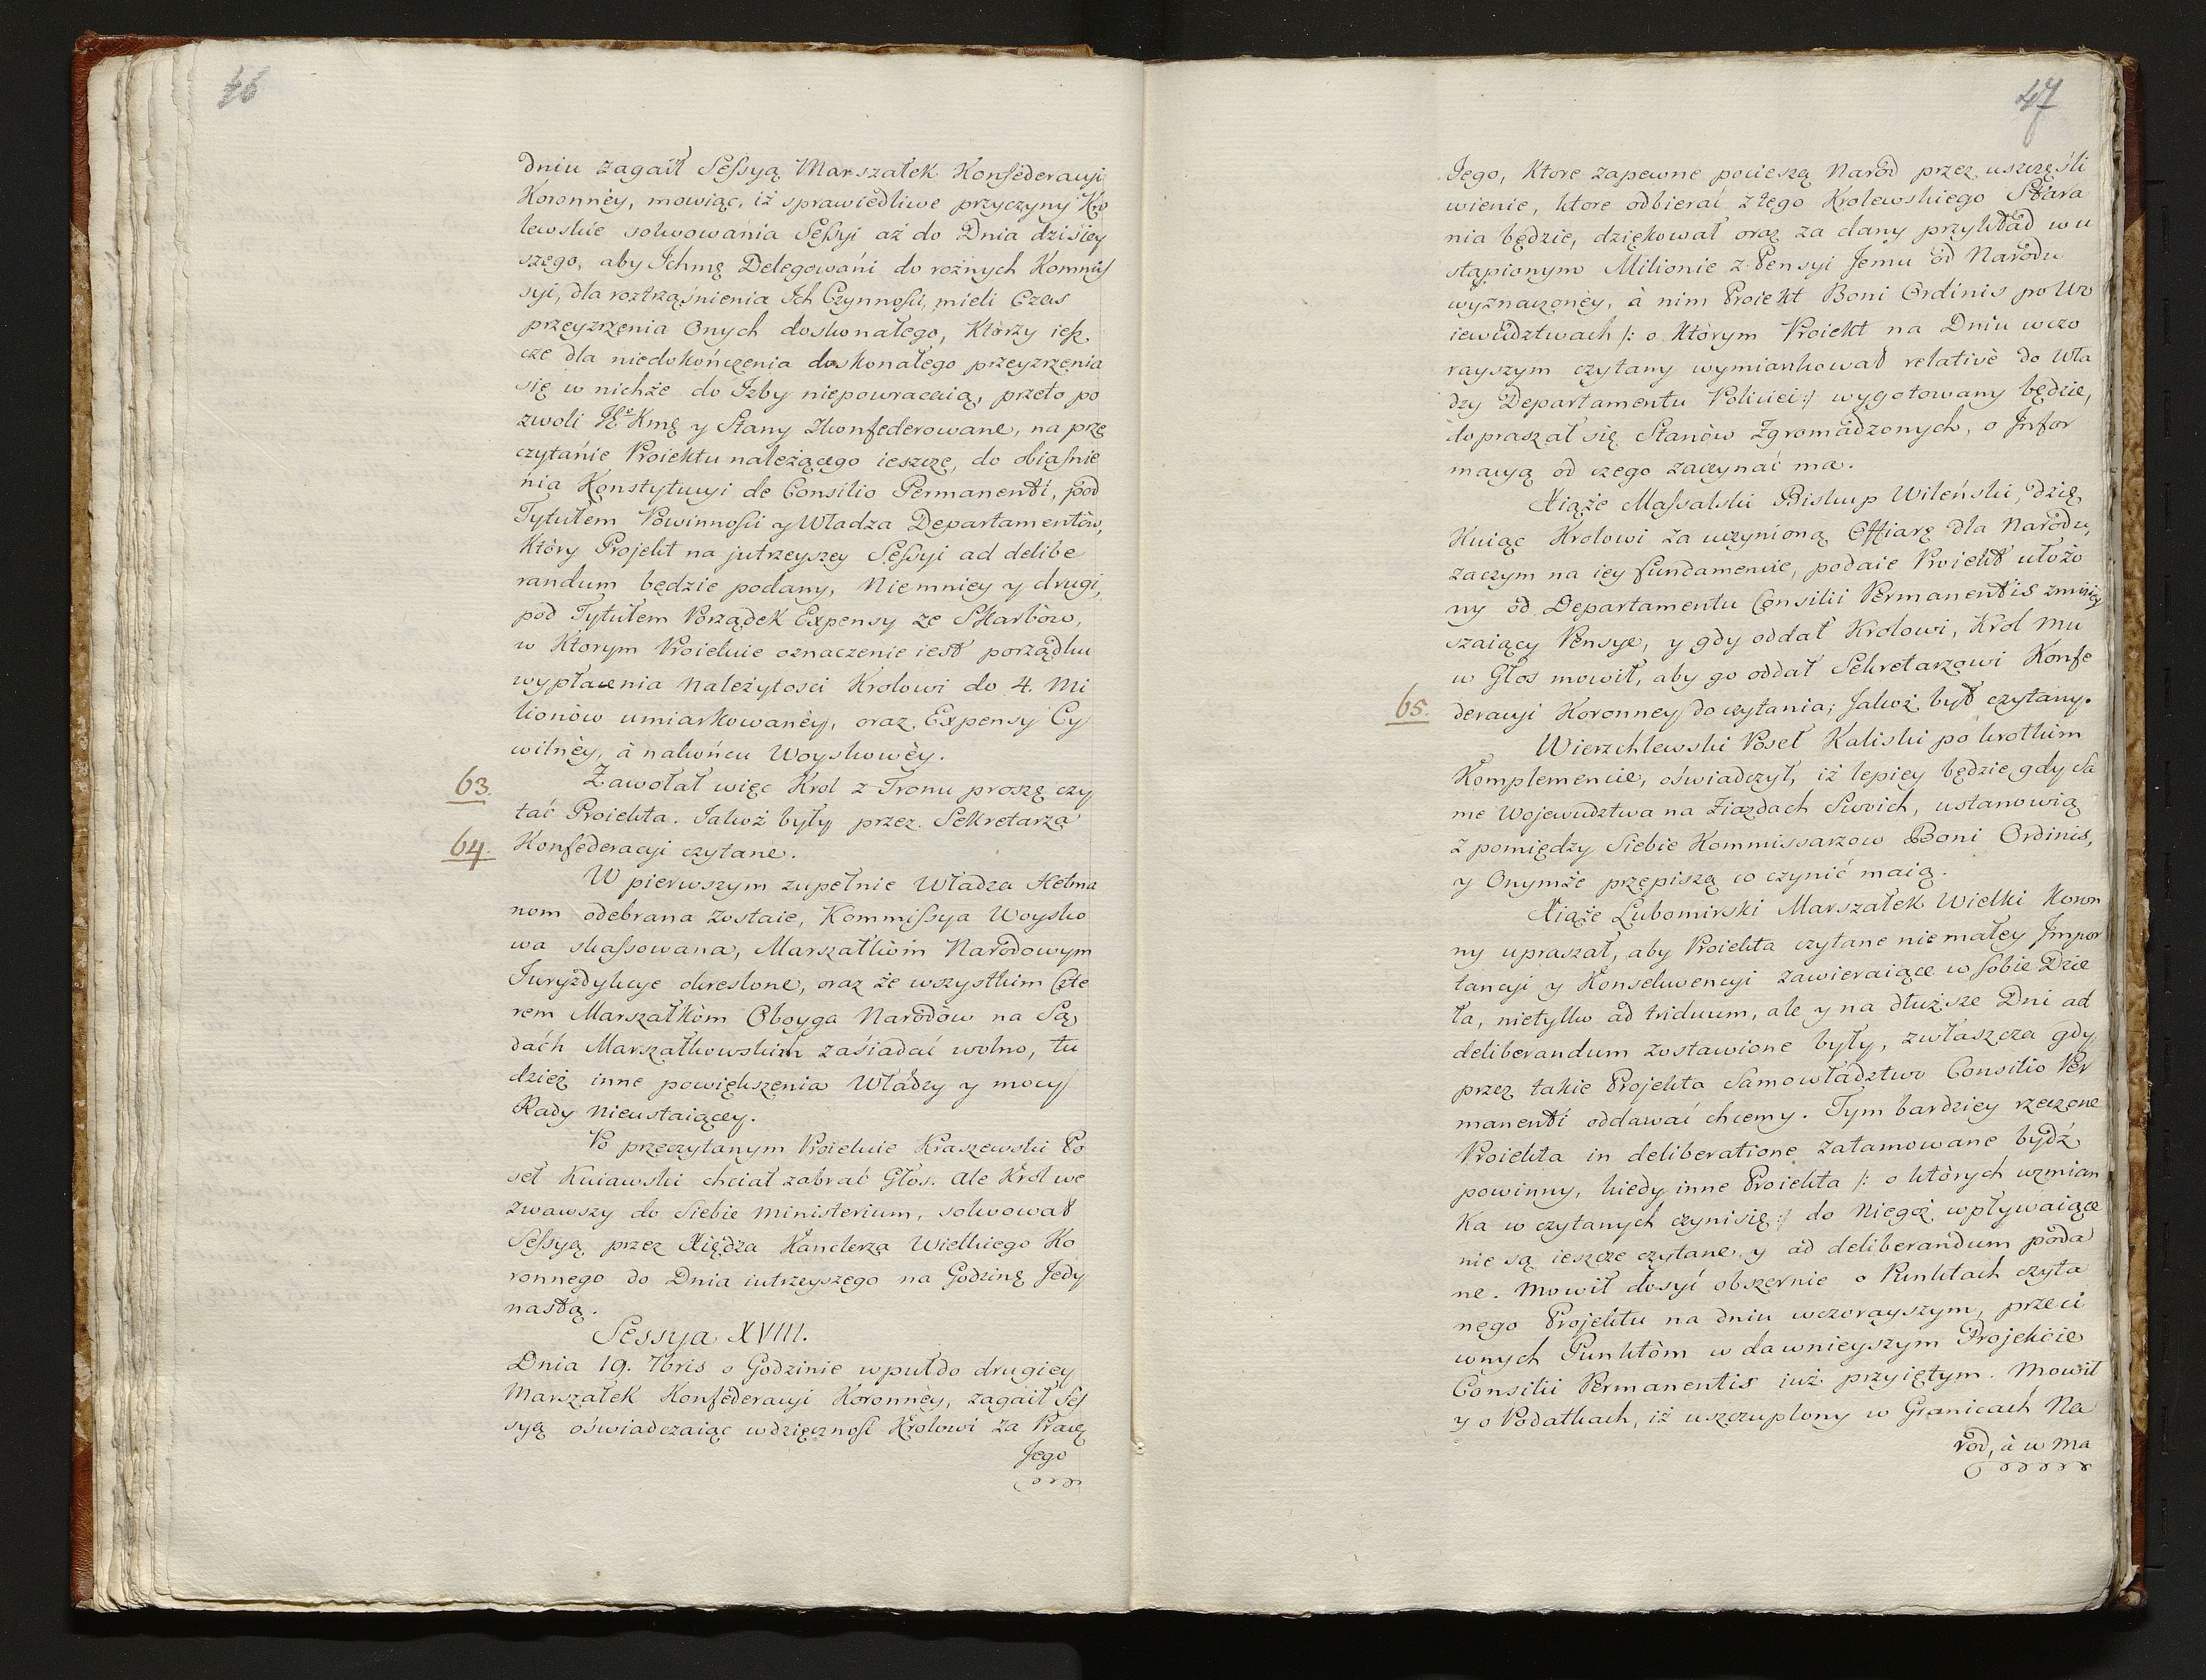 46
dniu zagaił Sessyą Marszałek Konfederacyi
Koronnéy, mowiąc, iż sprawiedliwe przyczyny Kro
lewskie solwowania Sessyi aż do Dnia dzisiey
szego, aby Ichmę Delegowani do rożnych Kommis
syi, dla roztrząśnienia Ich Czynnosci, mieli Czas
przeyzrzenia Onych doskonałego, Którzy iesz
cze dla niedokończenia doskonałego przeyzrzenia
się w nichże do Izby niepowracaią, przeto po
zwoli Kmę y Stany Zkonfederowane, na prze
czytanie Proiektu należącego ieszcze, do obiaśnie
nia Konstytucyi de Consilio Permanenti, pod
Tytułem Powinnosci y Władza Departamentòw,
Ktòry Projekt na jutrzeyszey Sessyi ad delibe
randum będzie podany, Niemniey y drugi,
pod Tytułem Porządek Expensy ze Skarbòw,
w Ktorym Proiekcie oznaczenie iest porządku
wypłacenia Należytosci Krolowi do 4. Mi
lionòw umiarkowanéy, oraz Expensy Cy
wilnéy, à nakońcu Woyskowéy.
63. Zawołał więc Krol z Tronu proszę czy
tać Proiekta. Jakoż były przez Sekretarza
64. Konfederacyi czytane.
W pierwszym zupełnie Władza Hetma
nom odebrana zostaie, Kommissya Woysko
wa skassowana, Marszałkòm Narodowym
Juryzdykcye okreslone, oraz że wszystkim Czte
rem Marszałkòm Oboyga Narodòw na Są
dach Marszałkowskich zasiadać wolno, tu
dzież inne powiększenia Władzy y mocy
Rady Nieustaiącey.
Po przeczytanym Proiekcie Kraszewski Po
seł Kuiawski chciał zabrać Głos. Ale Krol we
zwawszy do Siebie Ministerium, solwował
Sessyą przez Xiędza Kanclerza Wielkiego Ko
ronnego do Dnia iutrzeyszego na Godzinę Jedy
nastą.
Sessya XVIII.
Dnia 19. 7bris o Godzinie wpułdo drugiey
Marszałek Konfederacyi Koronnéy, zagaił Ses
syą oświadczaiąc wdzięcznosć Krolowi za Pracę
Jego
47
Jego, Ktore zapewne pocieszą Narod przez uszczęśli
wienie, ktore odbierać z tego Krolewskiego Stara
nia będzie, dziękował oraz za dany przykład wu
stąpionym Milionie z Pensyi Jemu od Narodu
wyznaczonéy, à nim Proiekt Boni Ordinis po Wo
iewodztwach /: o Ktòrym Proiekt na Dniu wczo
rayszym czytany wymiankował relativè do Wła
dzy Departamentu Policiei :/ wygotowany będzie,
dopraszał się Stanòw Zgromadzonych, o Infor
macyą od czego zaczynać ma.
Xiąże Massalski Biskup Wileński, dzię
Kuiąc Krolowi za uczynioną Offiarę dla Narodu,
zaczym na iey fundamencie, podaie Proiekt ułożo
ny od Departamentu Consilii Permanentis zmniey
szaiący Pensye, y gdy oddał Krolowi, Krol mu
w Głos mowił, aby go oddał Sekretarzowi Konfe
65. deracyi Koronney do czytania; Jakoż był czytany.
Wierzchlewski Poseł Kaliski po krotkim
Komplemencie, oświadczył, iż lepiey będzie gdy Sa
me Wojewodztwa na Ziazdach Swoich, ustanowią
z pomiędzy Siebie Kommissarzow Boni Ordinis,
y Onymże przepiszą co czynić maią.
Xiąże Lubomirski Marszałek Wielki Koron
ny upraszał, aby Proiekta czytane nie małey Impor
tancyi y Konsekwencyi zawieraiące w sobie Dzie
ła, nietylko ad triduum, ale y na dłuższe Dni ad
deliberandum zostawione były, zwłaszcza gdy
przez takie Projekta Samowładztwo Consilio Per
manenti oddawać chcemy. Tym bardziey rzeczone
Proiekta in deliberatione zatamowane bydź
powinny, kiedy inne Proiekta /: o ktòrych wzmian
Ka w czytanych czyni się :/ do Niegoż wpływaiące
nie są ieszcze czytane, y ad deliberandum poda
ne. Mowił dosyć obszernie o Punktach czyta
nego Projektu na dniu wczorayszym, przeci
wnych Punktòm w dawnieyszym Projekcie
Consilii Permanentis iuż przyiętym. Mowił
y o Podatkach, iż uszczuplony w Granicach Na
rod, à w ma